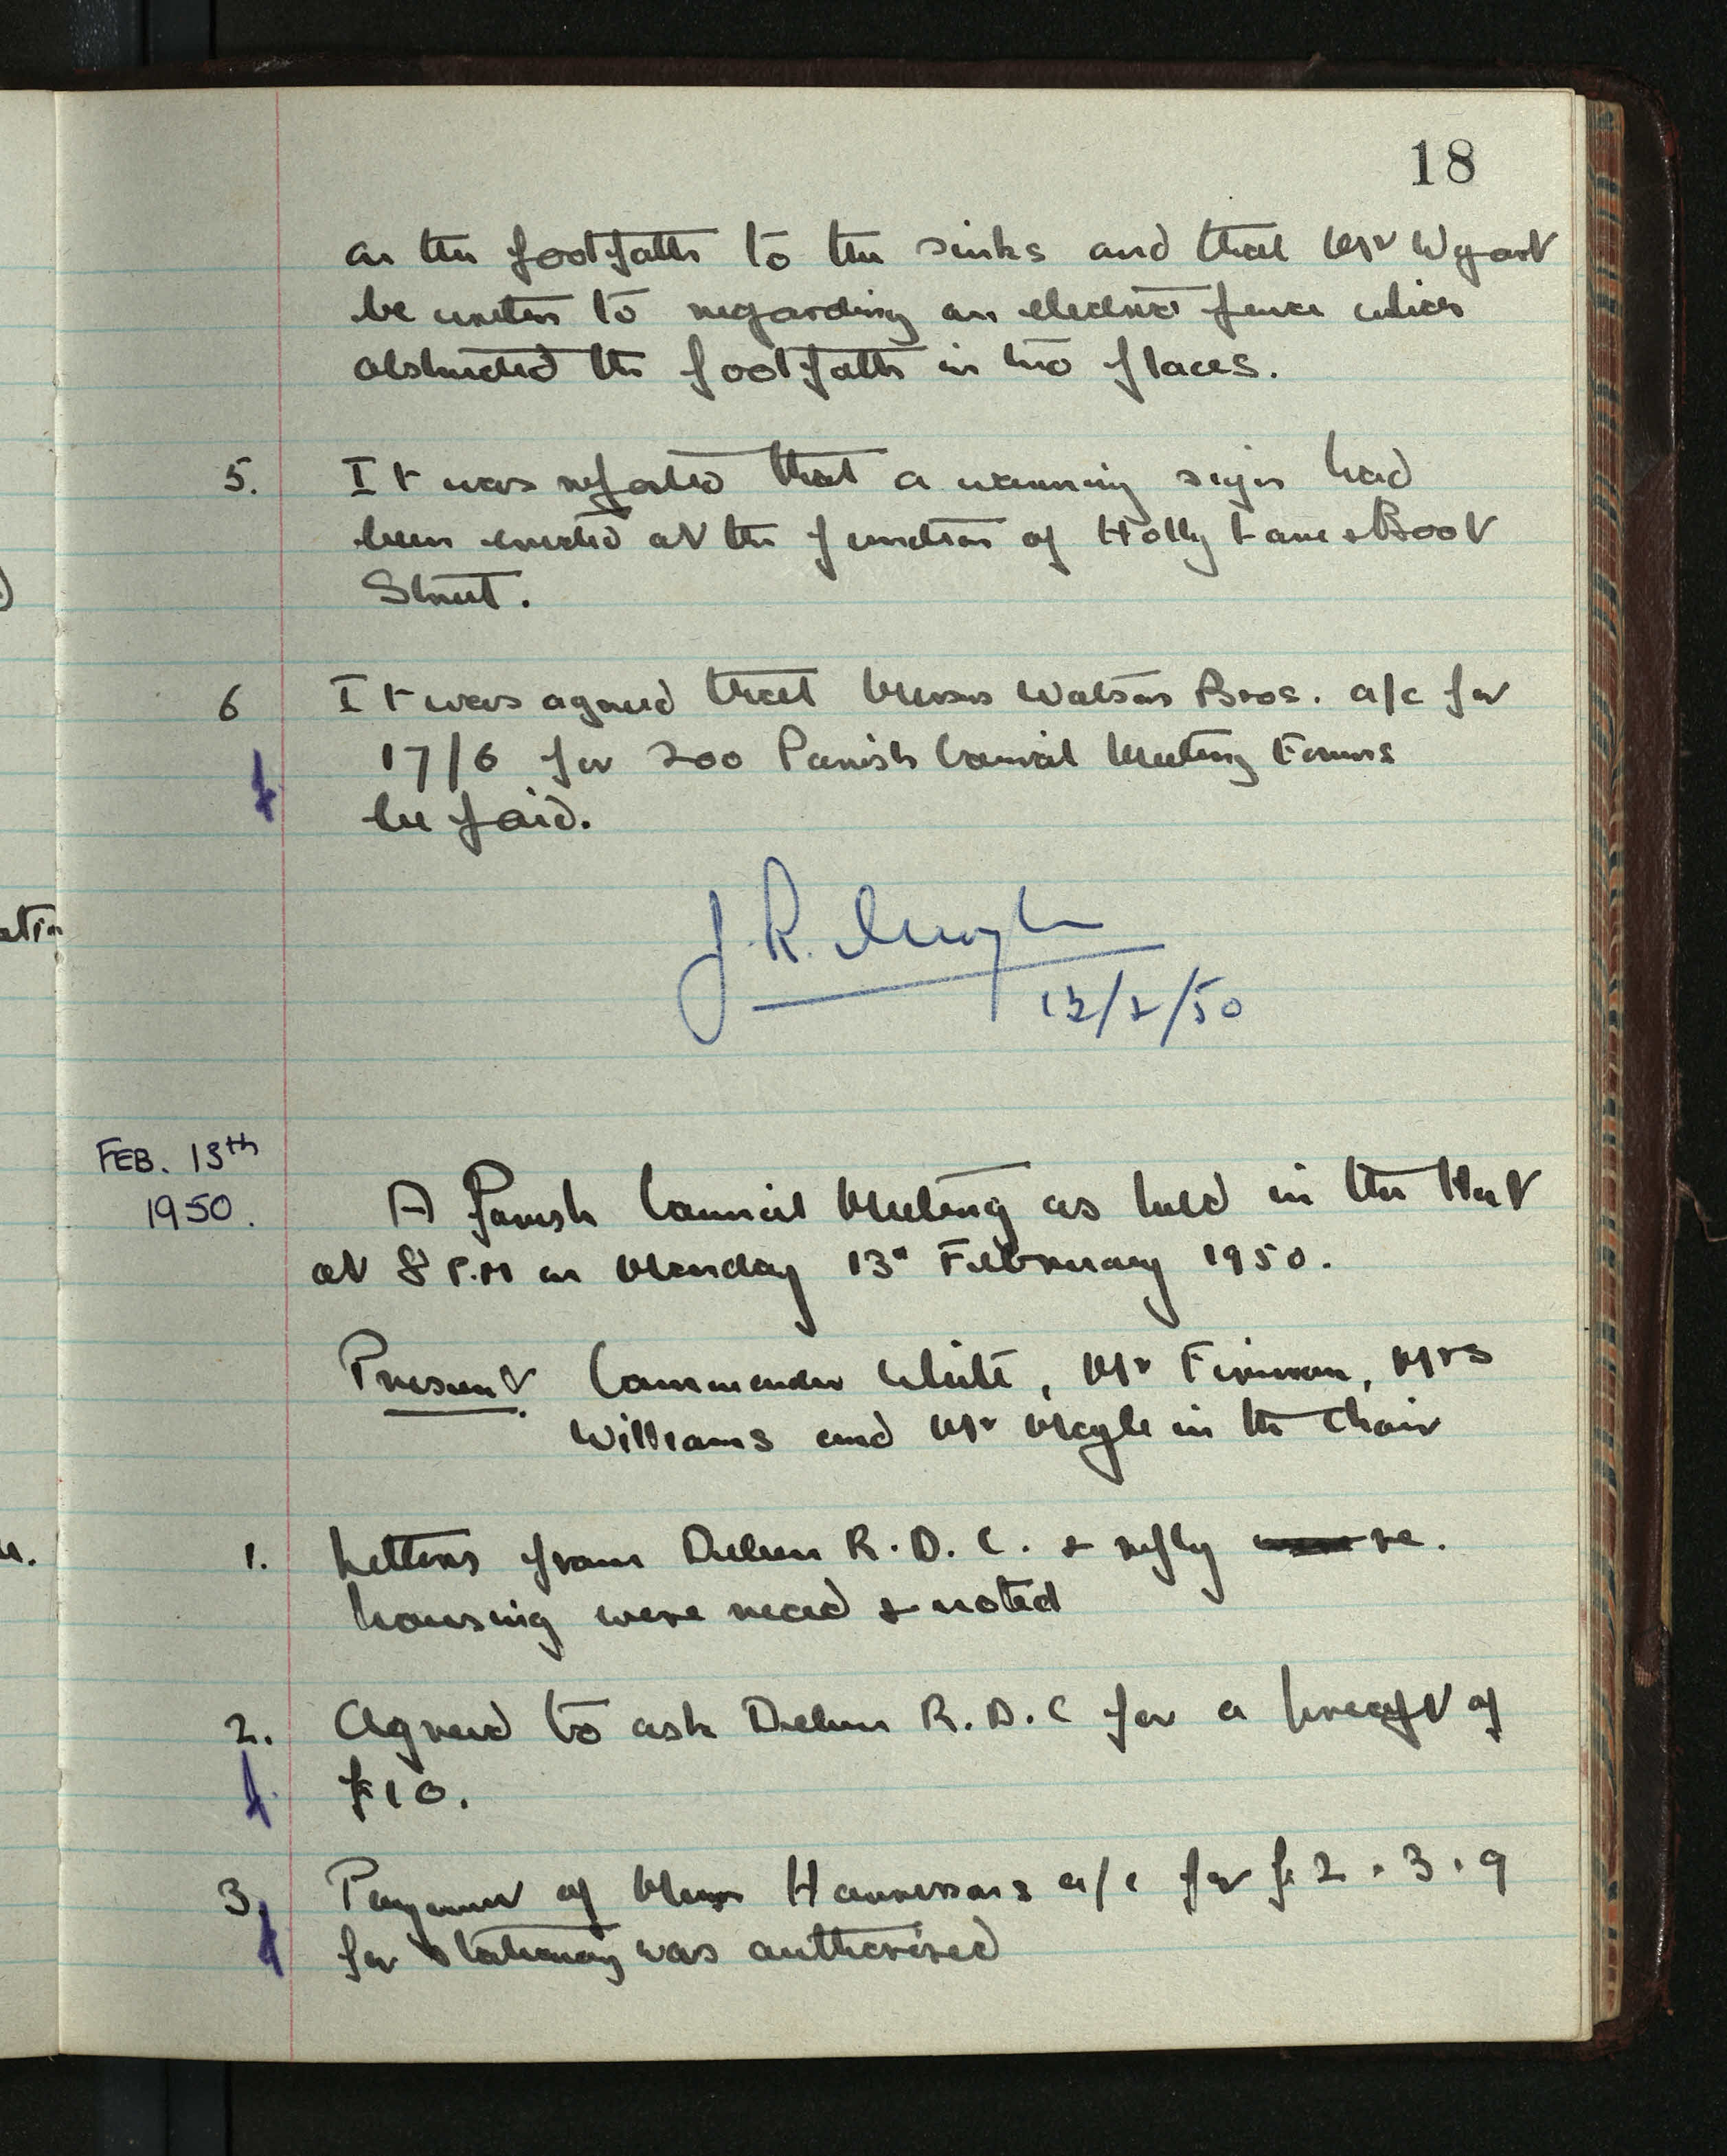 18
on the footpath to the sinks and that Mr Wyart
be written to regarding an electric fence which
obstructed the footpath in two places.
5. It was reported that a warning sign had
been erected at the junction of Holly Lane & Boot
Street.
6 It was agreed that Messrs Watson Bros. a/c for
17/6 for 200 Parish Council Meeting Forms
be paid.
J.R. Mayle
13/2/50
FEB. 13th
1950.
A Parish Council Meeting as held in the Hut
at 8 P.M on Monday 13th February 1950.
Present Commander White, Mr Finman, Mrs
Williams and Mr Mayle in the Chair
1. Letters from Deben R.D.C. & reply re.
housing were read & noted
2. Agreed to ask Deben R.D.C for a precept of
£10.
3. Payment of Messrs Harrisons a/c for £2.3.9
for stationary was authorised